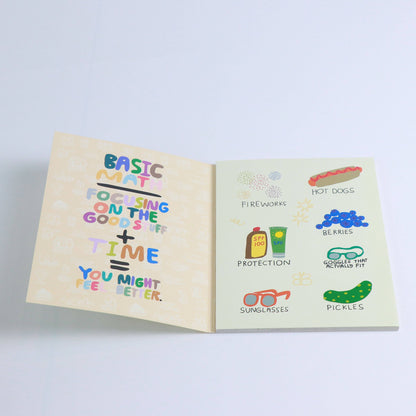 BASIC
MATH
FOCUSING
ON THE
GOOD STUFF
+
TIME
=
YOU MIGHT
FEEL BETTER.
FIREWORKS
HOT DOGS
SPF
100
PROTECTION
BERRIES
GOGGLES THAT
ACTUALLY FIT
SUNGLASSES
PICKLES